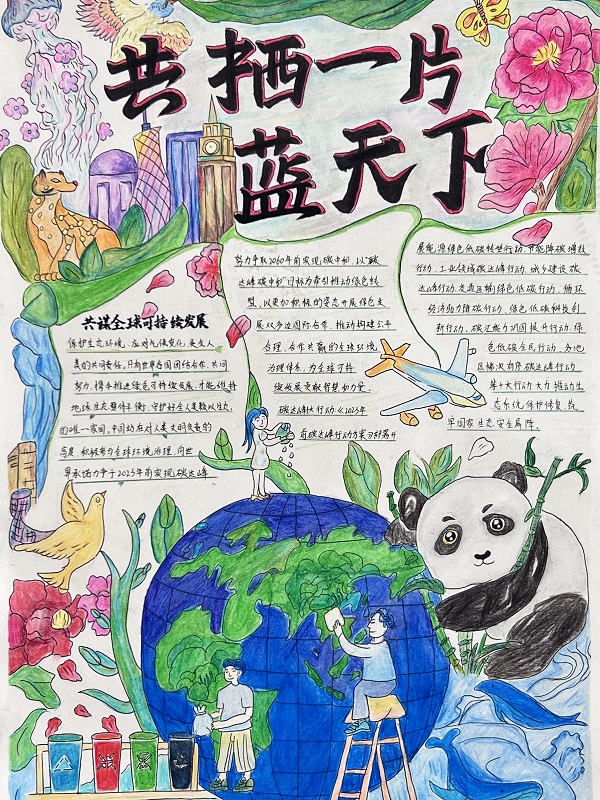 共栖一片
蓝天下
共谋全球可持续发展
保护生态环境,应对气候变化,是全人
类的共同责任,只有世界各国团结合作、共同
努力,携手推进绿色可持续发展,才能维持
地球生态整体平衡,守护好全人类赖以生态
的唯一家园,中国站在对人类文明负责的
高度,积极参与全球环境治理,向世
界承诺力争于2025年前实现碳达峰
努力争取2060年前实现碳中和,以“碳
达峰碳中和”目标为牵引推动绿色转
型,以更加积极的姿态开展绿色发
展双多边国际合作,推动构建公平
合理、合作共赢的全球环境
治理体系,为全球可持
续发展贡献智慧和力量
碳达峰十大行动《2023年
前碳达峰行动方案》部署开
展能源绿色低碳转型行动,节能降碳增效
行动、工业领域碳达峰行动、城乡建设碳
达峰行动、交通运输绿色低碳行动、循环
经济助力降碳行动、绿色低碳科技创
新行动、碳汇能力巩固提升行动、绿
色低碳全民行动、各地
区梯次有序碳达峰行动
等十大行动大力推动生
态系统保护修复,筑
牢国家生态安全屏障。